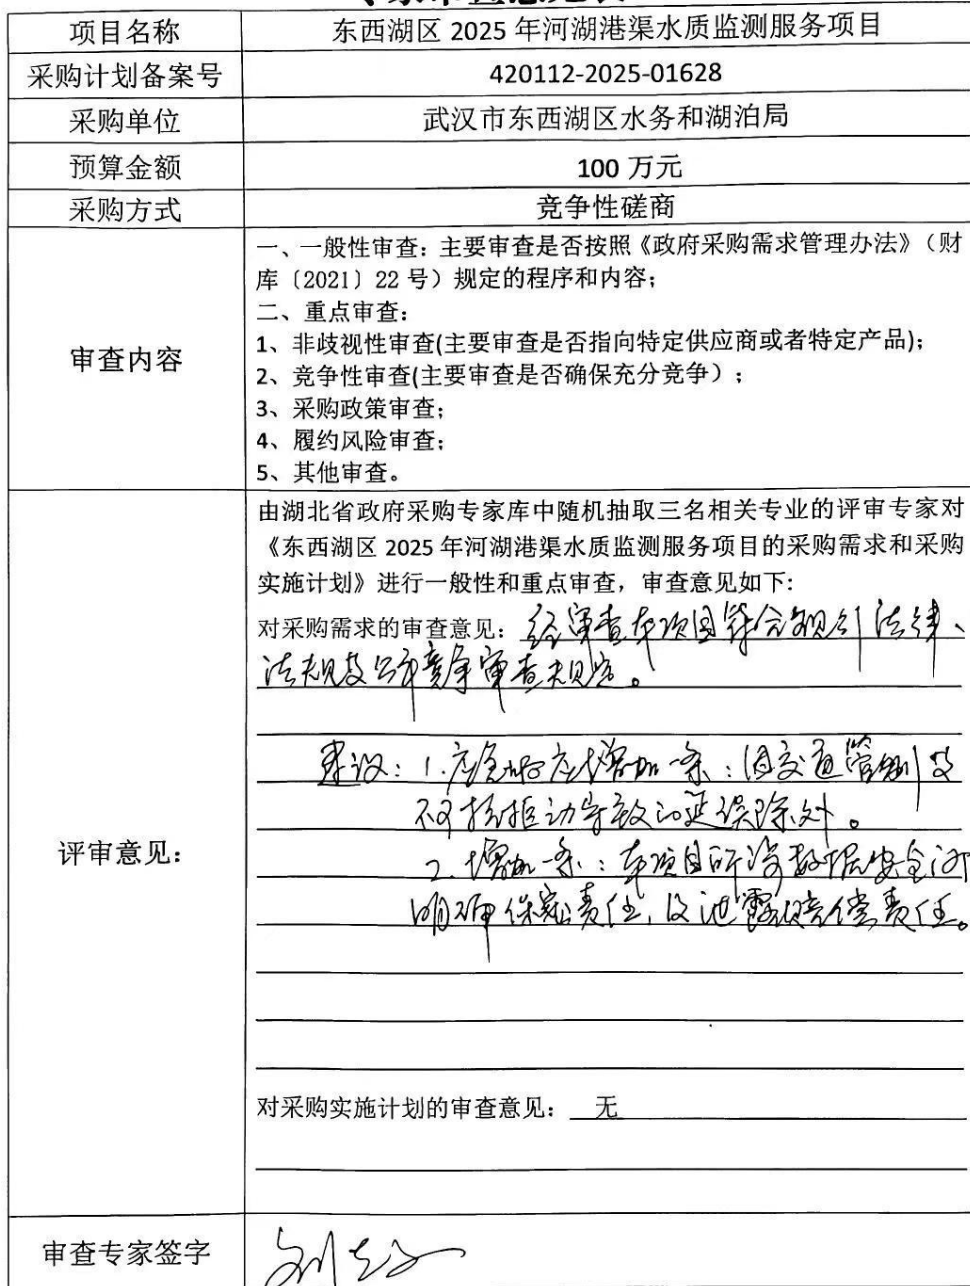 项目名称 东西湖区 2025 年河湖港渠水质监测服务项目
采购计划备案号 420112-2025-01628
采购单位 武汉市东西湖区水务和湖泊局
预算金额 100 万元
采购方式 竞争性磋商
审查内容
一、一般性审查：主要审查是否按照《政府采购需求管理办法》（财
库〔2021〕22 号）规定的程序和内容；
二、重点审查：
1、非歧视性审查(主要审查是否指向特定供应商或者特定产品)；
2、竞争性审查(主要审查是否确保充分竞争）；
3、采购政策审查；
4、履约风险审查；
5、其他审查。
评审意见：
由湖北省政府采购专家库中随机抽取三名相关专业的评审专家对
《东西湖区 2025 年河湖港渠水质监测服务项目的采购需求和采购
实施计划》进行一般性和重点审查，审查意见如下:
对采购需求的审查意见：经审查本项目符合现行法律、
法规及公平竞争审查规定。
建议：1.应急响应增加一条：因交通管制及
不可抗拒力导致的延误除外。
2.增加一条：本项目所涉数据安全
明确保密责任，及泄露赔偿责任。
对采购实施计划的审查意见： 无
审查专家签字